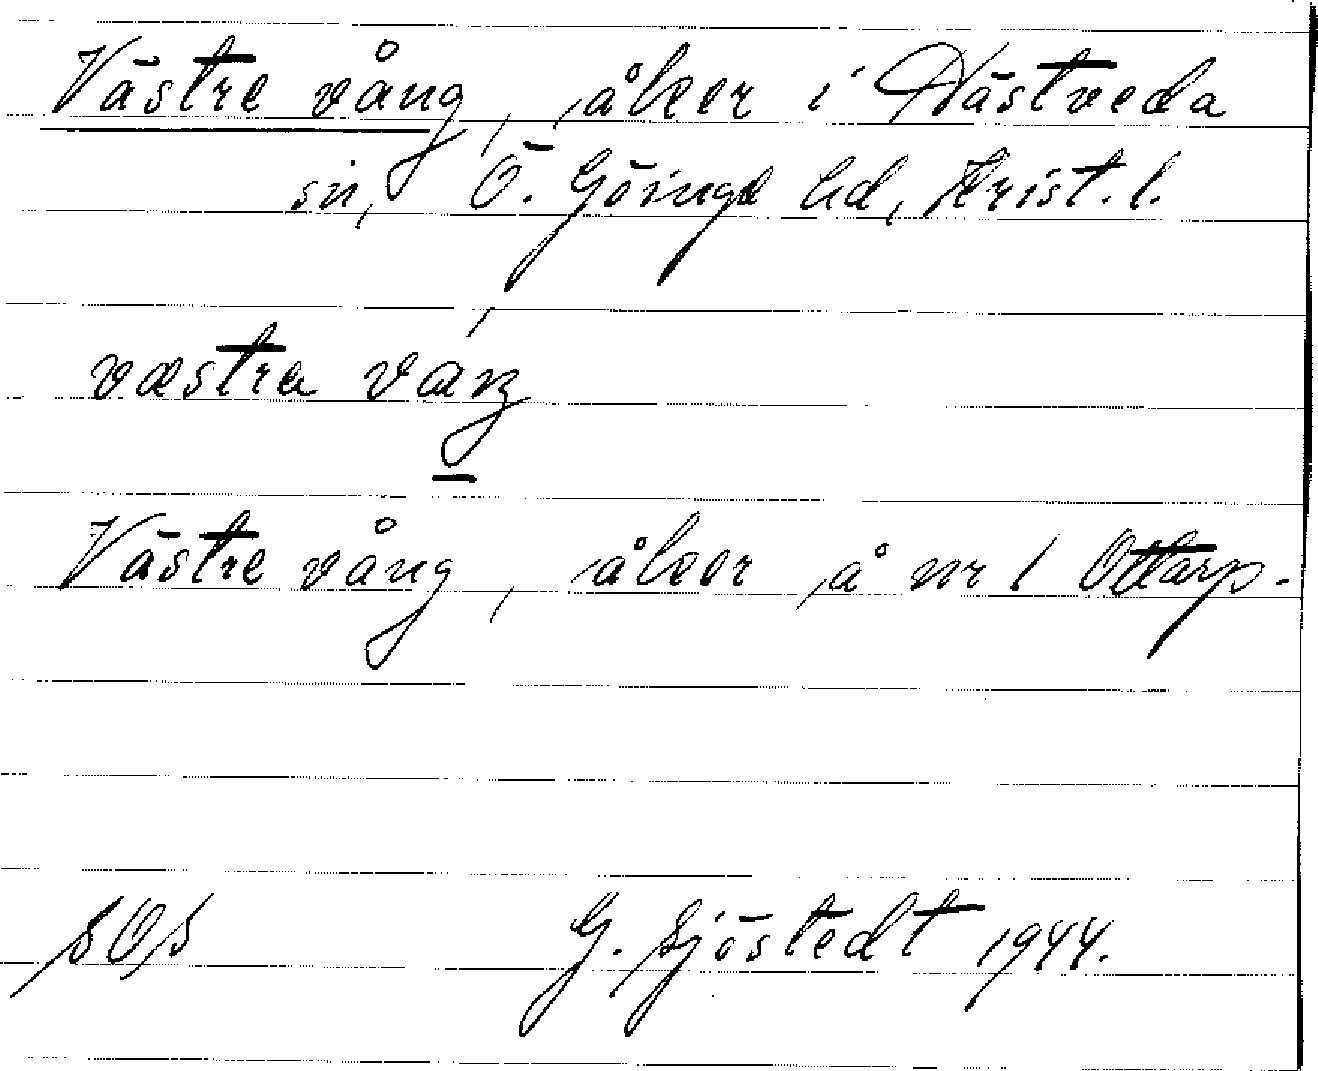 Västre vång, åker i Hästveda
sn, Ö. Göinge hd, Krist. l.
vœstra váŋ
Västre vång, åker å nr 1 Ottarp.
SOS G. Sjöstedt 1944.